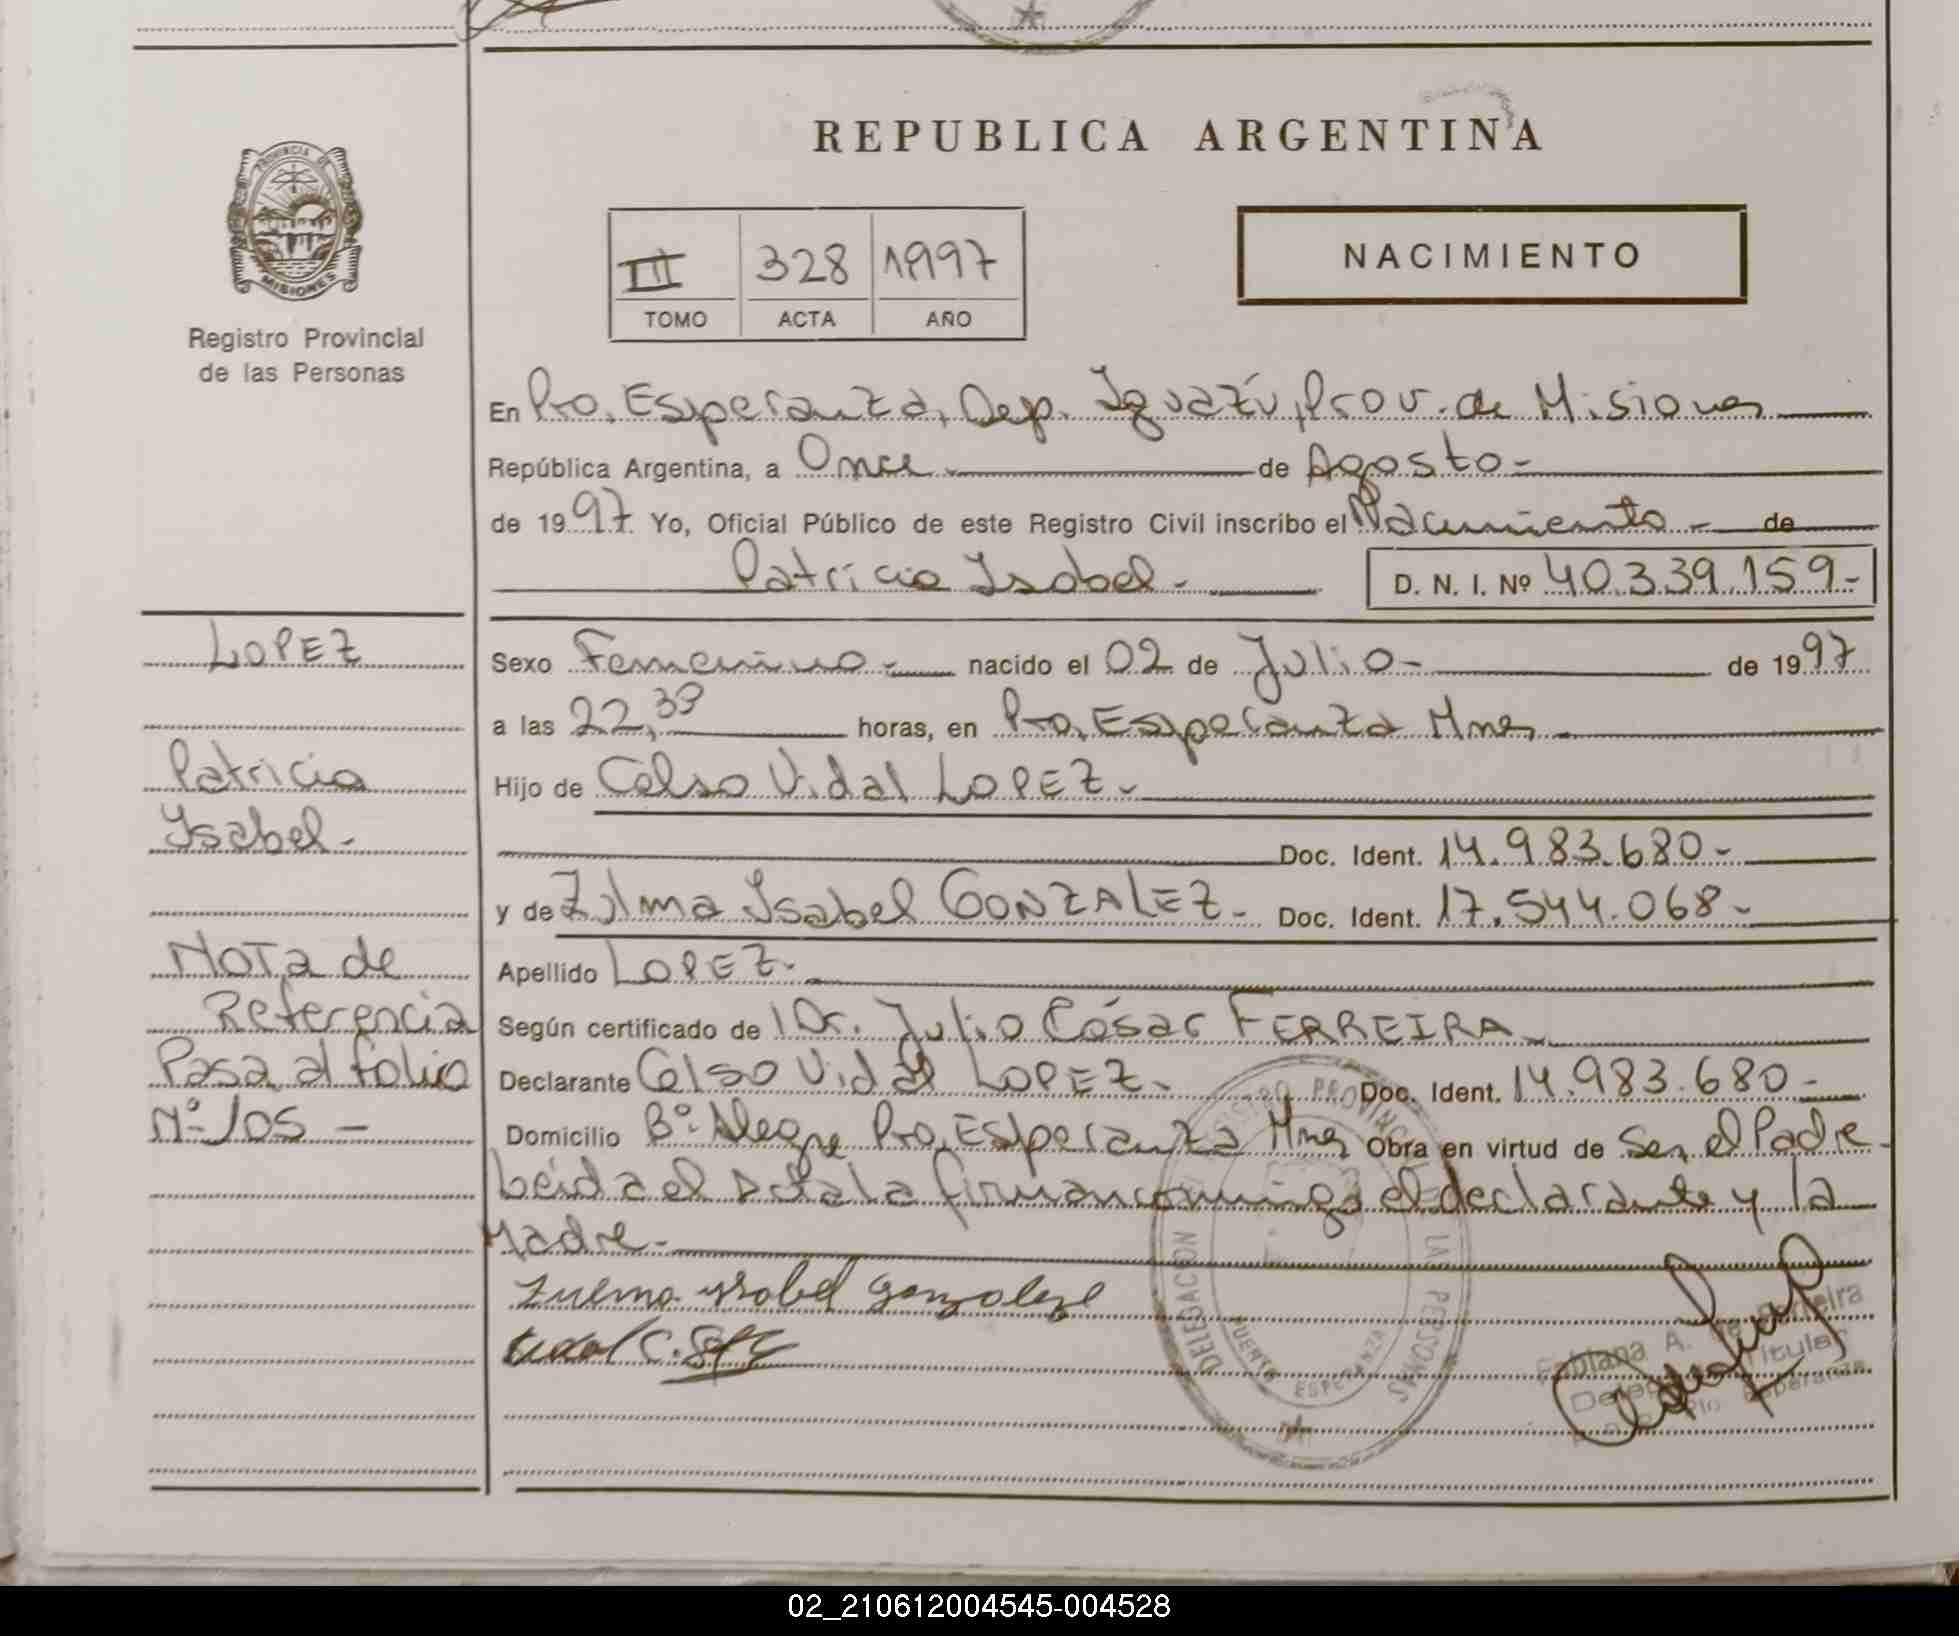 REPUBLICA ARGENTINA
PROVINCIA DE MISIONES
Registro Provincial
de las Personas
III 328 1997
TOMO ACTA AÑO
NACIMIENTO
En Pto. Esperanza, Dep. Iguazú, Prov. de Misiones
República Argentina, a Once.- de Agosto-
de 1997 Yo, Oficial Público de este Registro Civil inscribo el Nacimiento - de
Patricia Isabel- D. N. I. Nº 40.339.159-
LOPEZ
Patricia
Isabel-
Nota de
Referencia
Pasa al folio
Nº 105 -
Sexo Femenino- nacido el 02 de Julio- de 1997
a las 22,39 horas, en Pto. Esperanza Mnes
Hijo de Celso Vidal LOPEZ-
Doc. Ident. 14.983.680-
y de Zulma Isabel GONZALEZ- Doc. Ident. 17.544.068-
Apellido LOPEZ-
Según certificado de Dr. Julio César FERREIRA
Declarante Celso Vidal LOPEZ- Doc. Ident. 14.983.680-
Domicilio Bº Alegre Pto. Esperanza Mnes Obra en virtud de Ser el Padre-
Leída el Acta la firman conmigo el declarante y la
Madre-
Zulma Isabel Gonzalez
Vidal C.
DELEGACION PUERTO ESPERANZA
REGISTRO PROVINCIAL DE LAS PERSONAS
Fabiana A. de Ferreira
Titular
02_210612004545-004528